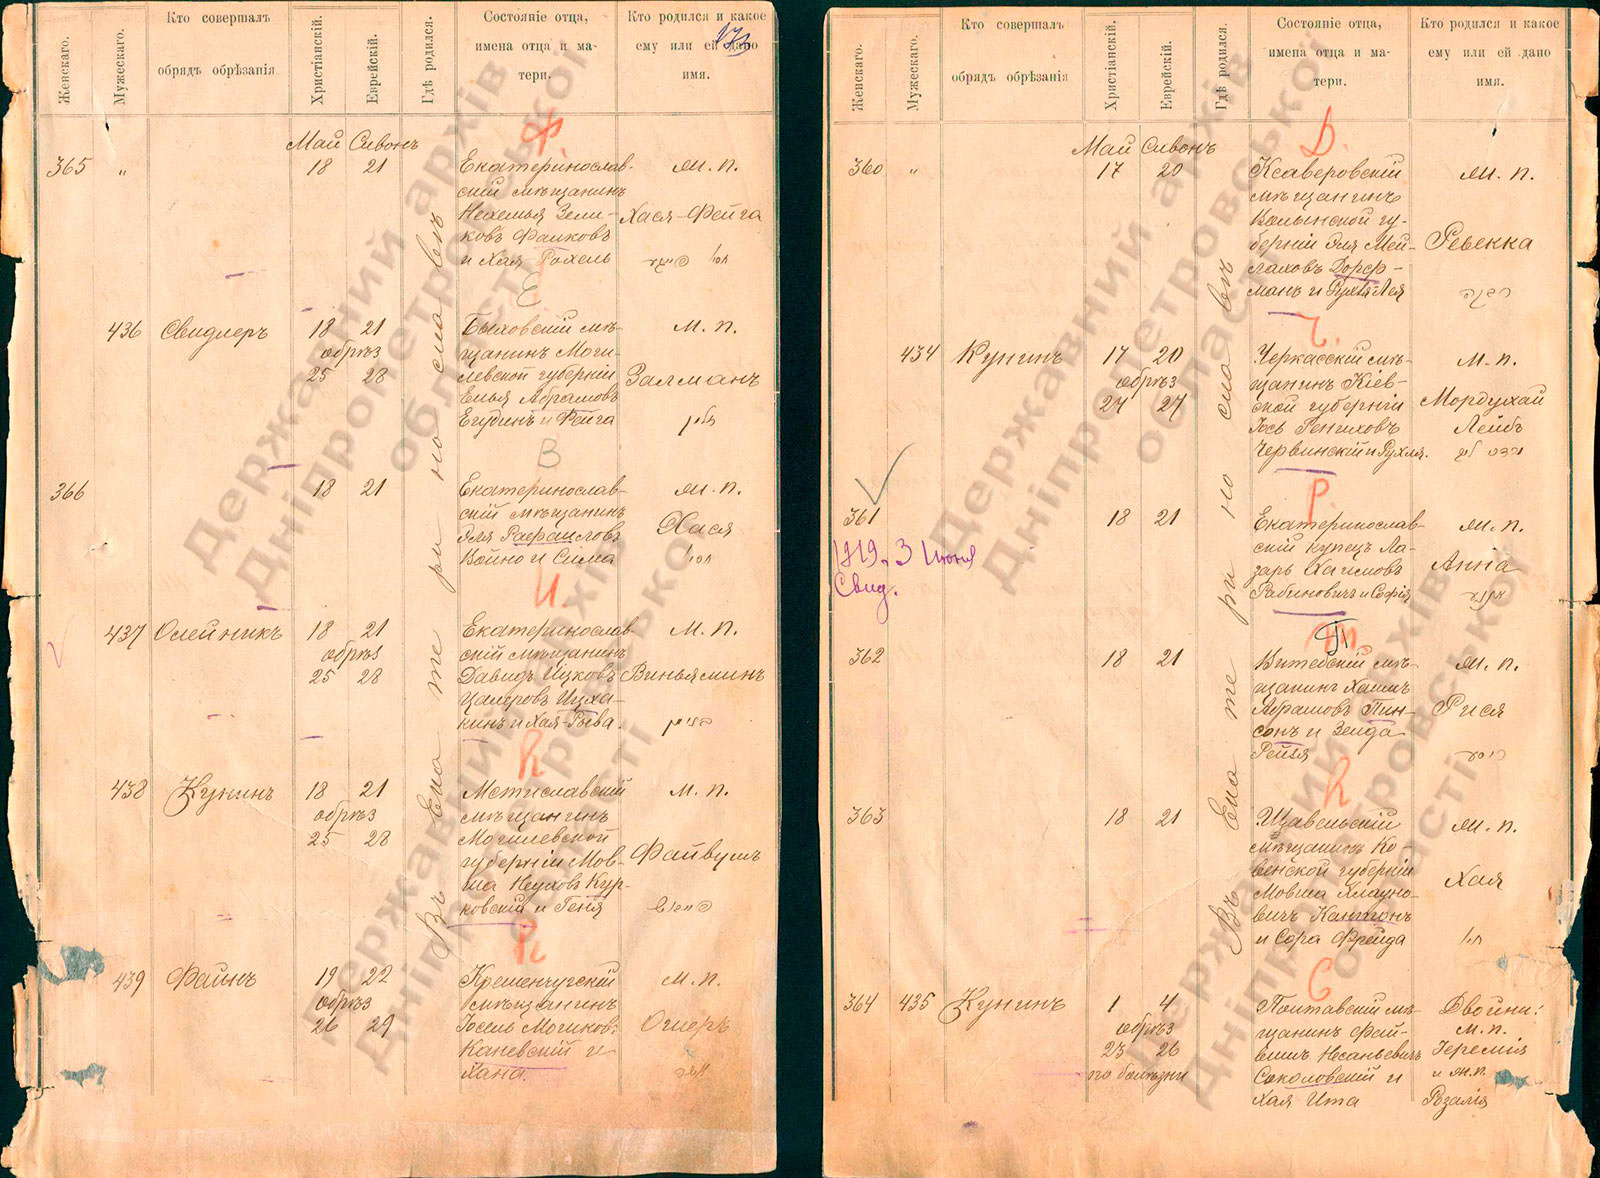 Женскаго.
Мужескаго.
Кто совершалъ
обрядъ обрѣзанія
Христіанскій.
Еврейскій.
Гдѣ родился.
Состояніе отца,
имена отца и ма-
тери.
Кто родился и какое
ему или ей дано
имя.
Май Сивонъ
Ф.
365 „ 18 21
Екатеринослав-
скій мѣщанинъ
Нехемья Зели-
ковъ Фалковъ
и Хая Рохель
М. п.
Хася-Фейга
Е
436 Свидлеръ 18 21
обрѣз
25 28
Быховскій мѣ-
щанинъ Моги-
левской губерніи
Елья Абрамовъ
Егудинъ и Фейга
М. п.
Залманъ
זלמן
В
366 18 21
Екатеринослав-
скій мѣщанинъ
Эля Рафаиловъ
Войно и Сима
М. п.
Хася
И.
437 Олейникъ 18 21
обрѣз
25 28
Екатеринослав-
скій мѣщанинъ
Давидъ Ицковъ
Ицха-
кинъ и Хая-
М. п.
Виньяминъ
К
438 Кунинъ 18 21
обрѣз
25 28
Мстиславскій
мѣщанинъ
Могилевской
губерніи Мов-
ша Неуховъ Кур-
ковскій и Геня
М. п.
Файвушъ
К
439 Файнъ 19 22
обрѣз
26 29
Кременчугскій
мѣщанинъ
Іосель
Каневскій и
Хана.
М. п.
Ошеръ
אשר
Въ Екатеринославѣ
Женскаго.
Мужескаго.
Кто совершалъ
обрядъ обрѣзанія
Христіанскій.
Еврейскій.
Гдѣ родился.
Состояніе отца,
имена отца и ма-
тери.
Кто родился и какое
ему или ей дано
имя.
Май Сивонъ
Д.
360 „ 17 20
Ксаверовскій
мѣщанинъ
Волынской гу-
берніи Эля Мей-
лаховъ Дорф-
манъ и Рухля Лея
М. п.
Ревекка
רבקה
Ч.
434 Кунинъ 17 20
обрѣз
24 27
Черкасскій мѣ-
щанинъ Кіев-
ской губерніи
Іось
Червинскій и Рухля.
М. п.
Мордухай
Лейбъ
Р
361 18 21
1919. 3 Июня
Свид.
Екатеринослав-
скій купецъ Ла-
зарь Хаимовъ
Рабиновичъ и Софія
М. п.
Анна
П
362 18 21
Витебскій мѣ-
щанинъ Хаимъ
Абрамовъ Пин-
сонъ и Зелда
Рейзя
М. п.
Рися
К
363 18 21
Шавельскій
мѣщанинъ Ко-
венской губерніи
Мовша
вичъ Канторъ
и Сора Фрейда
М. п.
Хая
חי׳
С
364 435 Кунинъ 1 4
обрѣз
23 26
по болѣзни
Полтавскій мѣ-
щанинъ Фай-
вишъ
Соколовскій и
Хая Ита
Двойни:
м. п.
Іеремія
и м. п.
Розалія
Въ Екатеринославѣ
Державний архів
Дніпропетровської
області